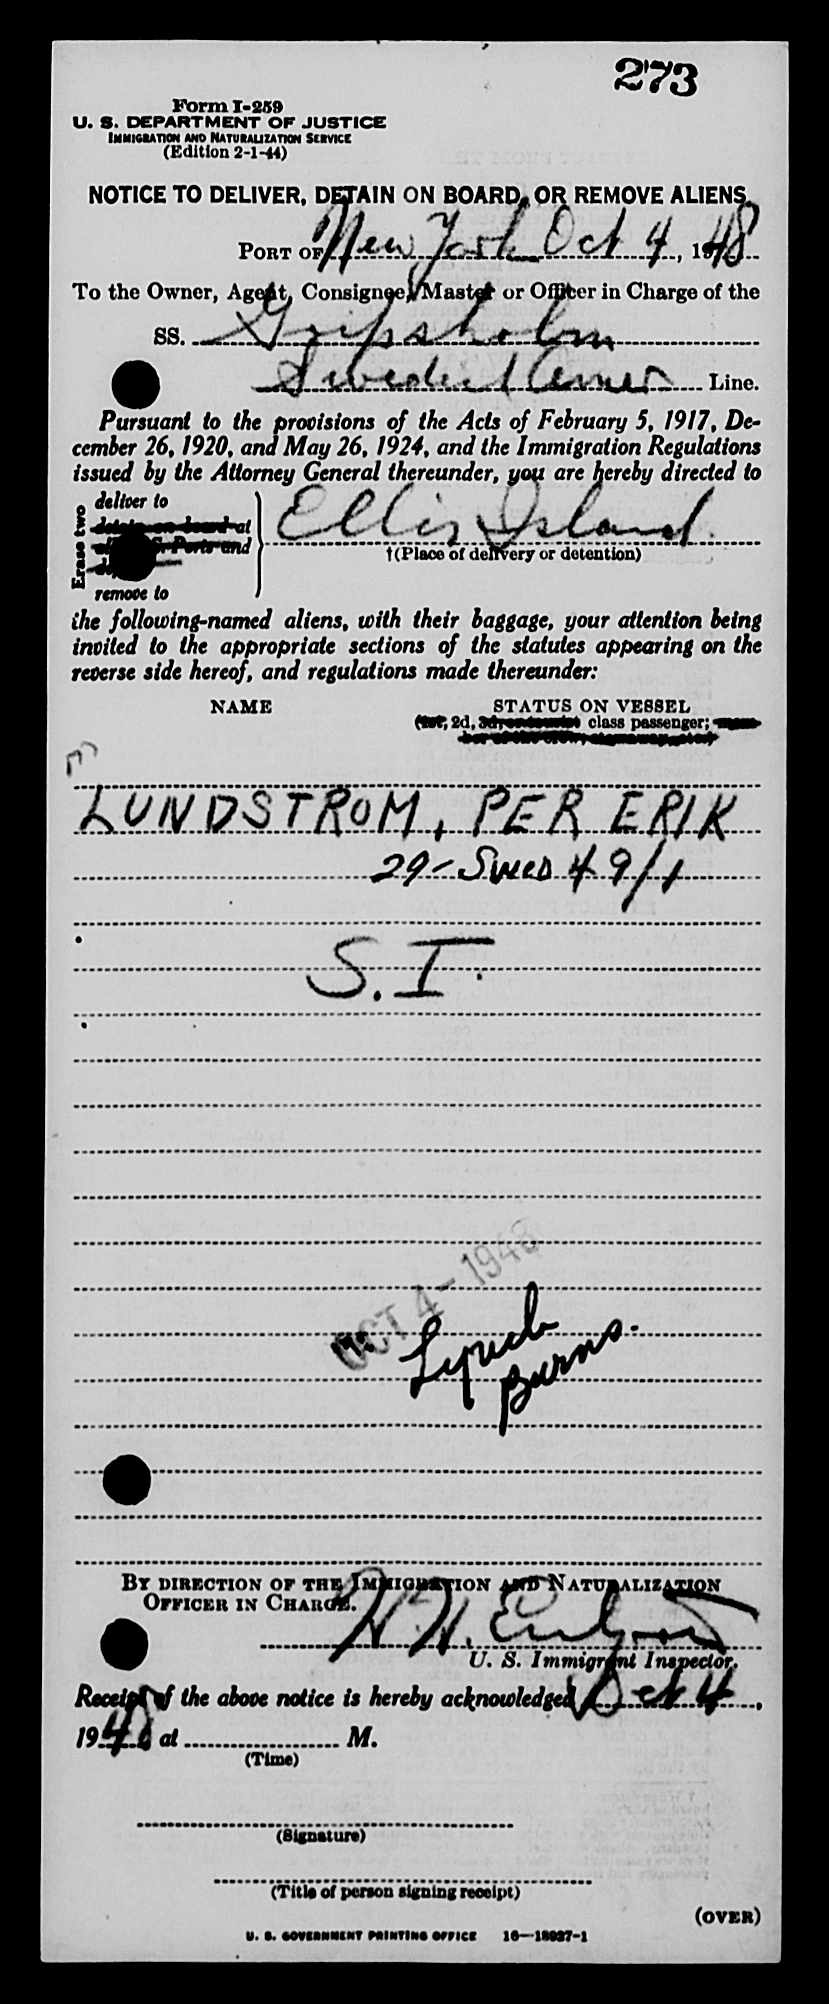 273
Form I-259
U. S. DEPARTMENT OF JUSTICE
IMMIGRATION AND NATURALIZATION SERVICE
(Edition 2-1-44)
NOTICE TO DELIVER, DETAIN ON BOARD, OR REMOVE ALIENS
PORT OF New York Oct 4, 1948
To the Owner, Agent, Consignee, Master or Officer in Charge of the
SS. Gripsholm
Swedish Amer Line.
Pursuant to the provisions of the Acts of February 5, 1917, De-
cember 26, 1920, and May 26, 1924, and the Immigration Regulations
issued by the Attorney General thereunder, you are hereby directed to
Erase two
deliver to
detain on board at
S. Ports and
remove to
Ellis Island
†(Place of delivery or detention)
the following-named aliens, with their baggage, your attention being
invited to the appropriate sections of the statutes appearing on the
reverse side hereof, and regulations made thereunder:
NAME STATUS ON VESSEL
(1st, 2d, 3d, or tourist class passenger; mem-
ber of the crew, stowaway, etc.)
LUNDSTROM, PER ERIK
29- SWED 49/1
S.I.
OCT 4-1948
Lynch
Burns.
BY DIRECTION OF THE IMMIGRATION AND NATURALIZATION
OFFICER IN CHARGE.
H. H.
U. S. Immigrant Inspector.
Receipt of the above notice is hereby acknowledged Oct 4,
1948 at M.
(Time)
(Signature)
(Title of person signing receipt)
(OVER)
U. S. GOVERNMENT PRINTING OFFICE 16—18927-1